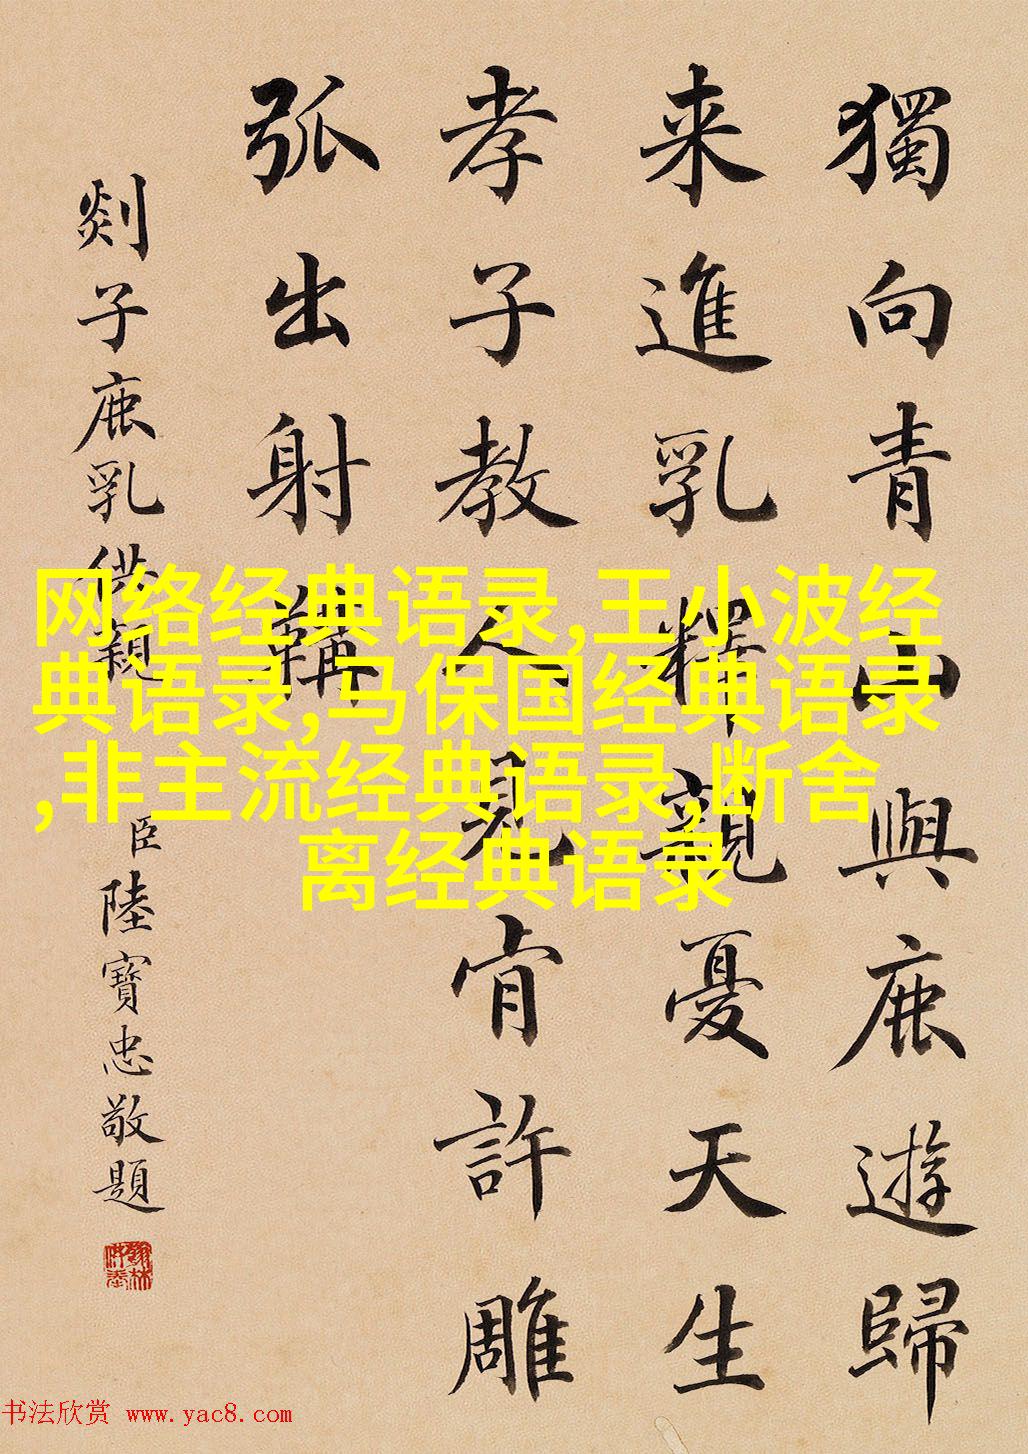 獨向青山與鹿遊歸
来進乳釋親憂天生
孝子教人見肯許雕
弧出射鞲
剡子鹿乳供親
臣陸寶忠敬題
网络经典语录,王小波经
典语录,马保国经典语录
,非主流经典语录,断舍
离经典语录
书法欣赏 www.yac8.com